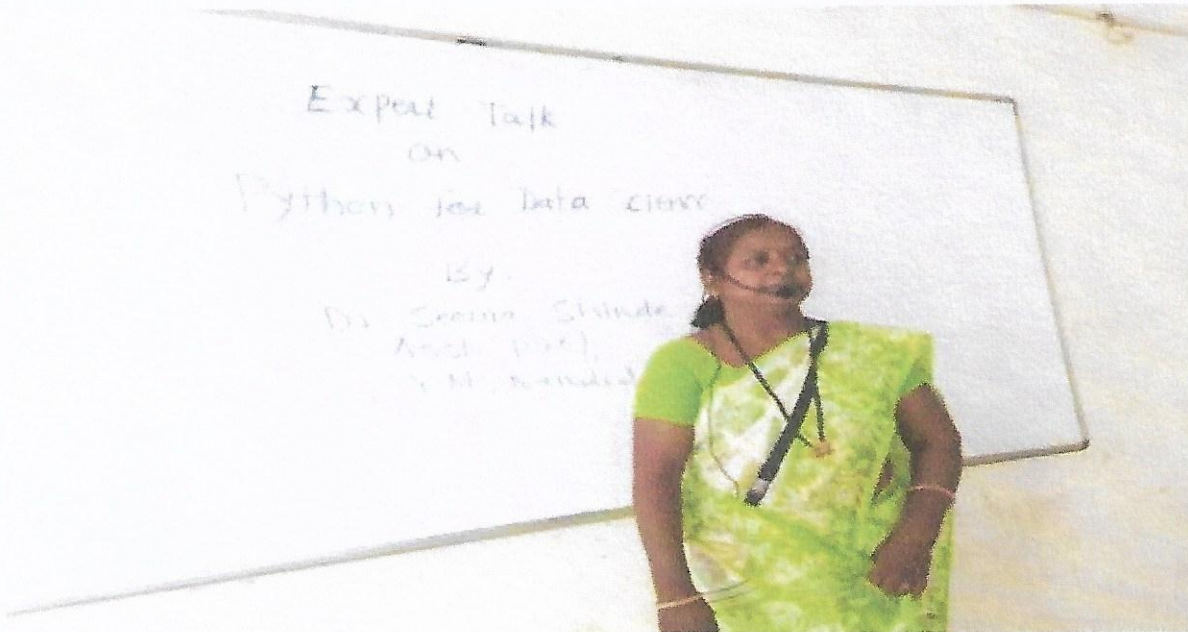 Expert Talk
on
Python for Data
By
Dr. Seema Shinde
Asst. Prof.